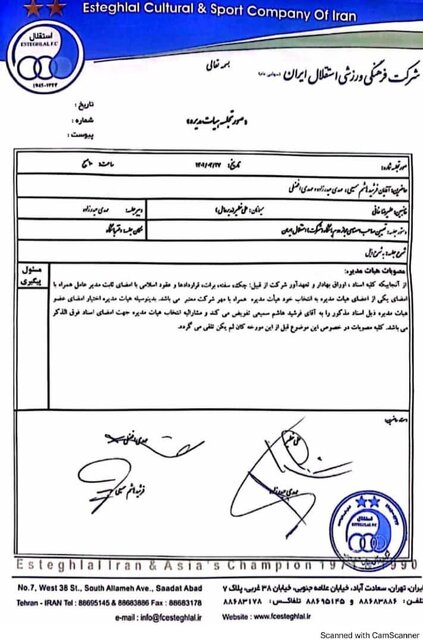 Esteghlal Cultural & Sport Company Of Iran
استقلال
ESTEGHLAL F.C
۱۳۲۴-۱۹۴۵
بسمه تعالی
شرکت فرهنگی ورزشی استقلال ایران (سهامی عام)
تاریخ :
شماره :
پیوست :
«صورتجلسه هیات مدیره»
صورتجلسه شماره:
تاریخ:
ساعت:
حاضرین: آقایان فرشید هاشم سمیعی، مهدی حیدرزاده، مهدی افضلی
غایبین:
دبیر جلسه: مهدی حیدرزاده
مکان جلسه: دفتر باشگاه
شرح جلسه: به شرح ذیل
مسئول پیگیری
مصوبات هیات مدیره:
از آنجاییکه کلیه اسناد ، اوراق بهادار و تعهدآور شرکت از قبیل: چک، سفته، برات، قراردادها و عقود اسلامی با امضای ثابت مدیر عامل همراه با
امضای یکی از اعضای هیات مدیره به انتخاب خود هیأت مدیره همراه با مهر شرکت معتبر می باشد. بدینوسیله هیات مدیره اختیار امضای عضو
هیات مدیره ذیل اسناد مذکور را به آقای فرشید هاشم سمیعی تفویض می کند و مشارالیه انتخاب هیات مدیره جهت امضای اسناد فوق الذکر
می باشد. کلیه مصوبات در خصوص این موضوع قبل از این مورخه کان لم یکن تلقی می گردد.
مهدی افضلی
علی خطیر
فرشید هاشم سمیعی
مهدی حیدرزاده
استقلال
ESTEGHLAL F.C
Esteghlal Iran & Asia's Champion
1990
No.7, West 38 St., South Allameh Ave., Saadat Abad
Tehran - IRAN Tel : 88695145 & 88683886 Fax : 88683178
e-mail : info@fcesteghlal.ir
ایران، تهران، سعادت آباد، خیابان علامه جنوبی، خیابان ۳۸ غربی، پلاک ۷
تلفن : ۸۸۶۸۳۸۸۶ & ۸۸۶۹۵۱۴۵ فاکس : ۸۸۶۸۳۱۷۸
Website : www.fcesteghlal.ir
Scanned with CamScanner